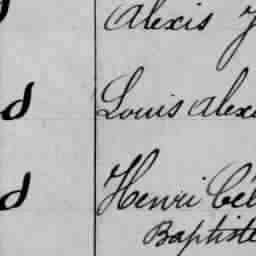 Alexis
d Louis Alex
d Henri Cél
Baptiste